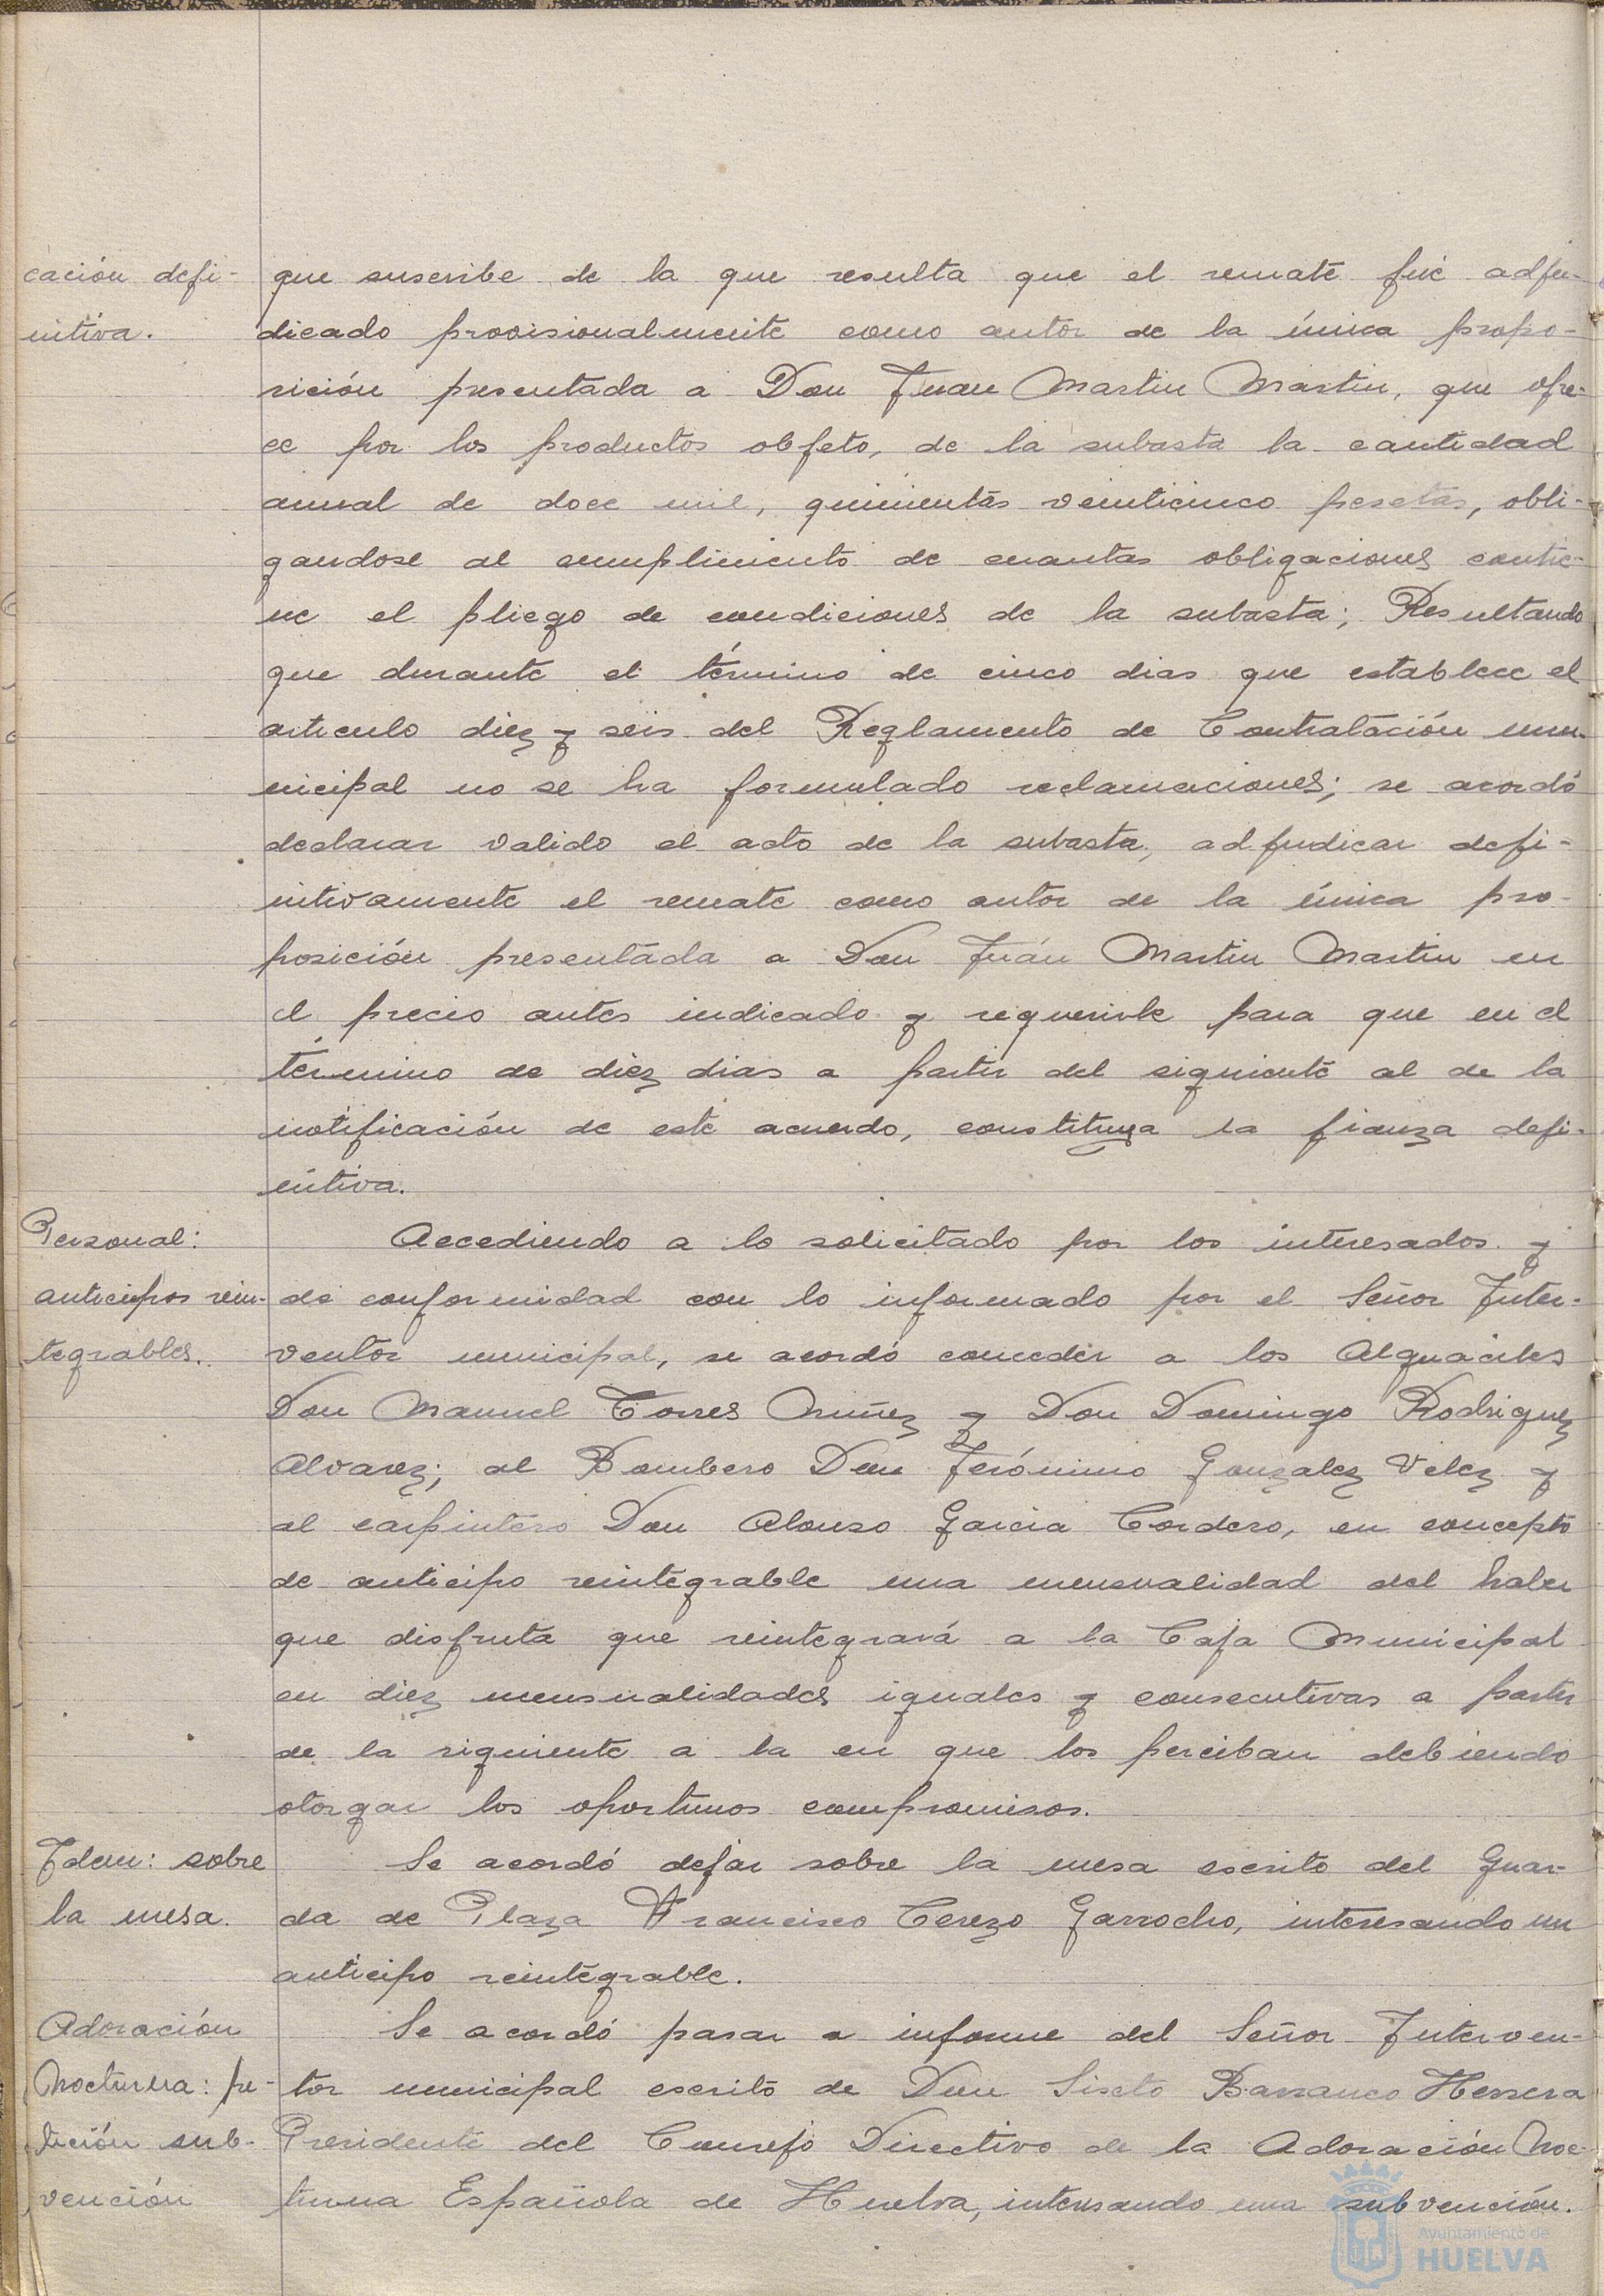 cación defi-
nitiva.
que suscribe de la que resulta que el remate fué adju-
dicado provisionalmente como autor de la única propo-
sición presentada a Don Juan Martin Martin, que ofre-
ce por los productos objeto, de la subasta la cantidad
anual de doce mil, quinientas veinticinco pesetas, obli-
gandose al cumplimiento de cuantas obligaciones contie-
ne el pliego de condiciones de la subasta; Resultando
que durante el término de cinco dias que establece el
articulo diez y seis del Reglamento de Contratación mu-
nicipal no se ha formulado reclamaciones; se acordó
declarar valido el acto de la subasta, adjudicar defi-
nitivamente el remate como autor de la única pro-
posición presentada a Don Juán Martin Martin en
el precio antes indicado y requerirle para que en el
término de diez dias a partir del siguiente al de la
notificación de este acuerdo, constituya la fianza defi-
nitiva.
Personal:
anticipos rein-
tegrables.
Accediendo a lo solicitado por los interesados y
de conformidad con lo informado por el Señor Inter-
ventor municipal, se acordó conceder a los Alguaciles
Don Manuel Torres Nuñez y Don Domingo Rodriguez
Alvarez; al Bombero Don Jerónimo Gonzalez Velez y
al carpintero Don Alonso Garcia Cordero, en concepto
de anticipo reintegrable una mensualidad del haber
que disfruta que reintegrará a la Caja Municipal
en diez mensualidades iguales y consecutivas a partir
de la siguiente a la en que los perciban debiendo
otorgar los oportunos compromisos.
Idem: sobre
la mesa.
Se acordó dejar sobre la mesa escrito del Guar-
da de Plaza Francisco Cerezo Garrocho, interesando un
anticipo reintegrable.
Adoración
Nocturna: pe-
tición sub-
vención
Se acordó pasar a informe del Señor Interven-
tor municipal escrito de Don Sixto Barranco Herrera
Presidente del Consejo Directivo de la Adoración Noc-
turna Española de Huelva, interesando una subvención.
Ayuntamiento de
HUELVA